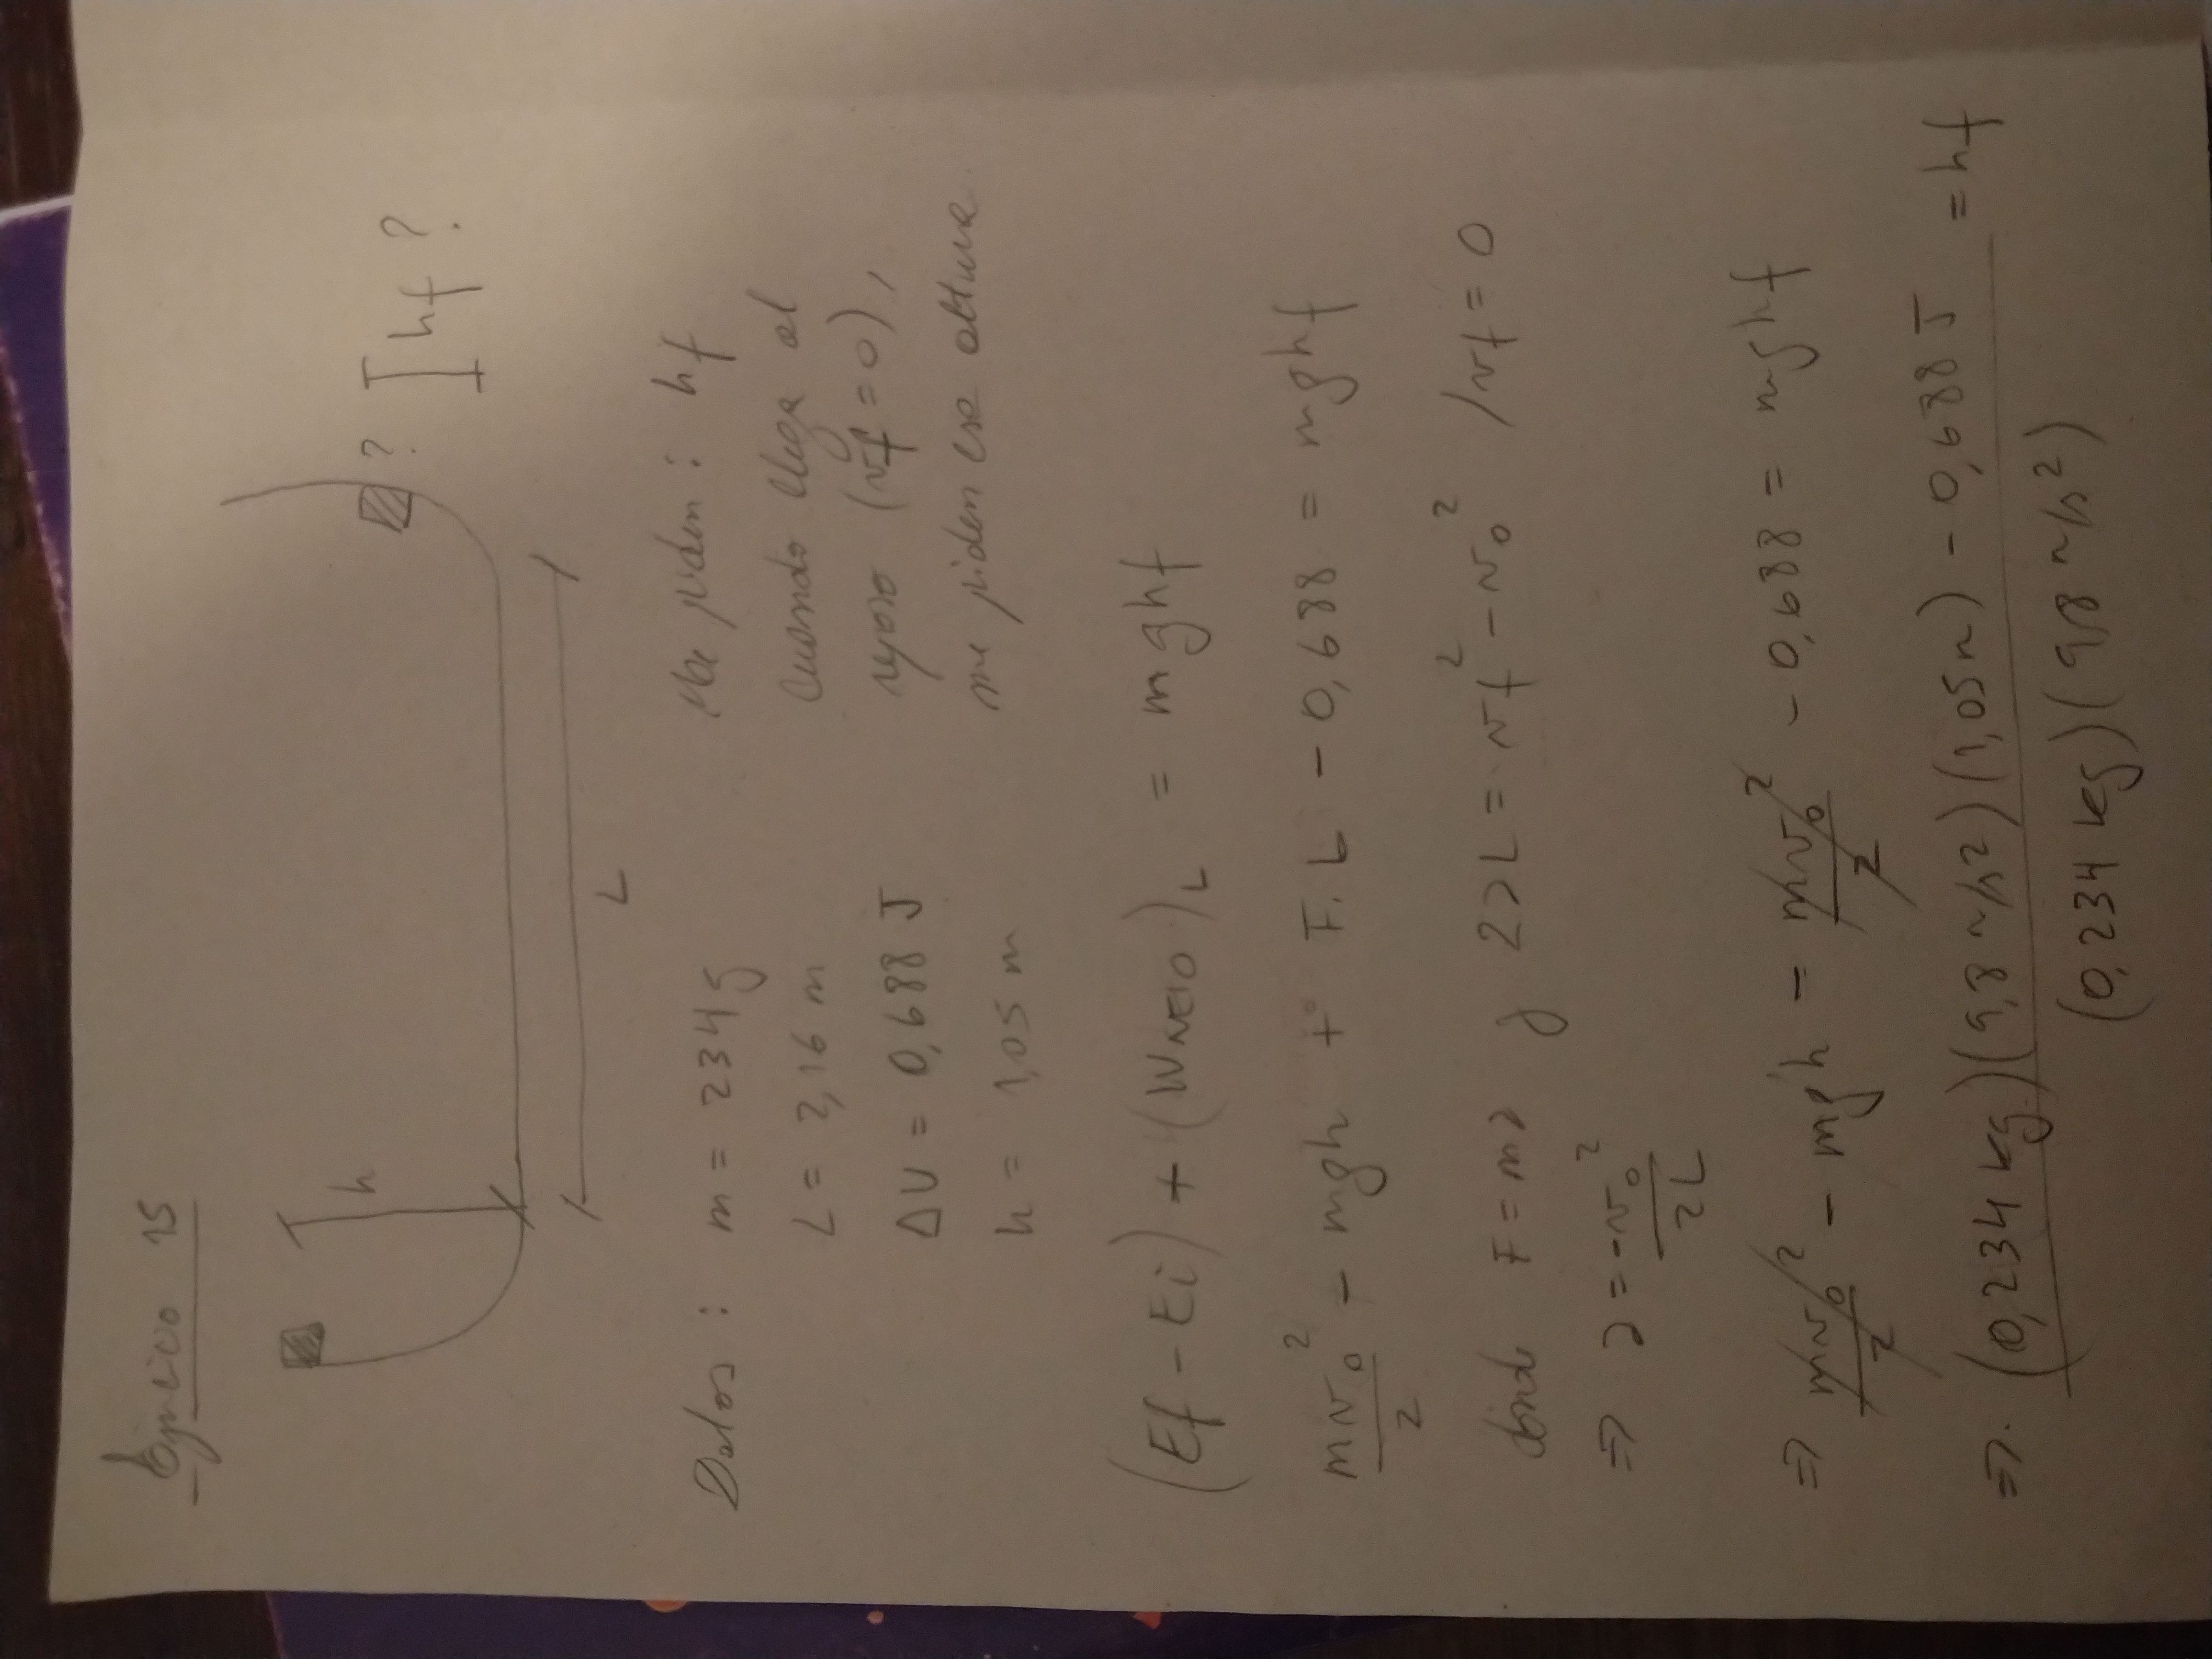 Ejercicio 15
h
? hf ?
L
Datos : m = 234 g
L = 2,16 m
ΔU = 0,688 J
h = 1,05 m
Me piden : hf
cuando llega al
reposo (vf = 0),
me piden esa altura.
(Ef - Ei) + (WNETO)L = mghf
mv₀²/2 - mgh + F. L - 0,688 = mghf
donde F = ma y 2aL = vf² - v₀² / vf = 0
⇒ a = -v₀²/2L
⇒ mv₀²/2 - mgh - mv₀²/2 - 0,688 = mghf
⇒ (0,234 kg)(9,8 m/s2)(1,05m) - 0,688 J / (0,234 kg)(9,8 m/s²) = hf